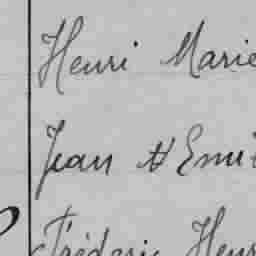 Henri Marie
Jean
Frédéric Henri